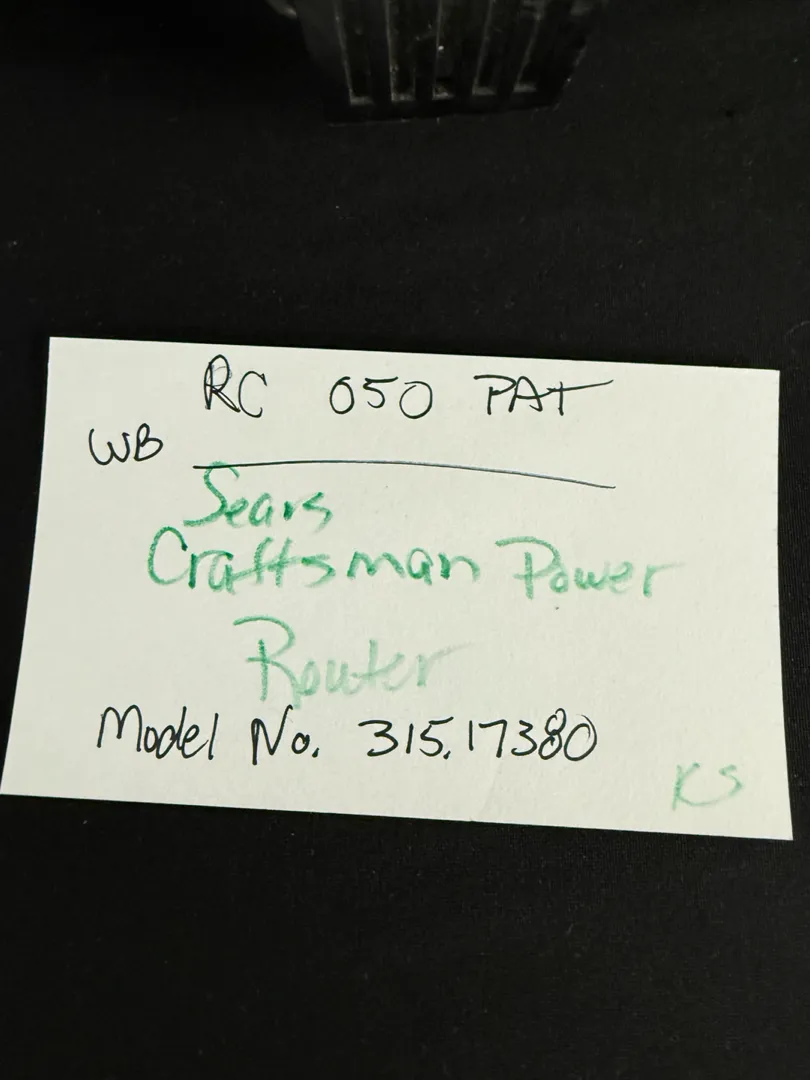 RC 050 PAT
WB
Sears
Craftsman Power
Router
Model No. 315.17380
KS